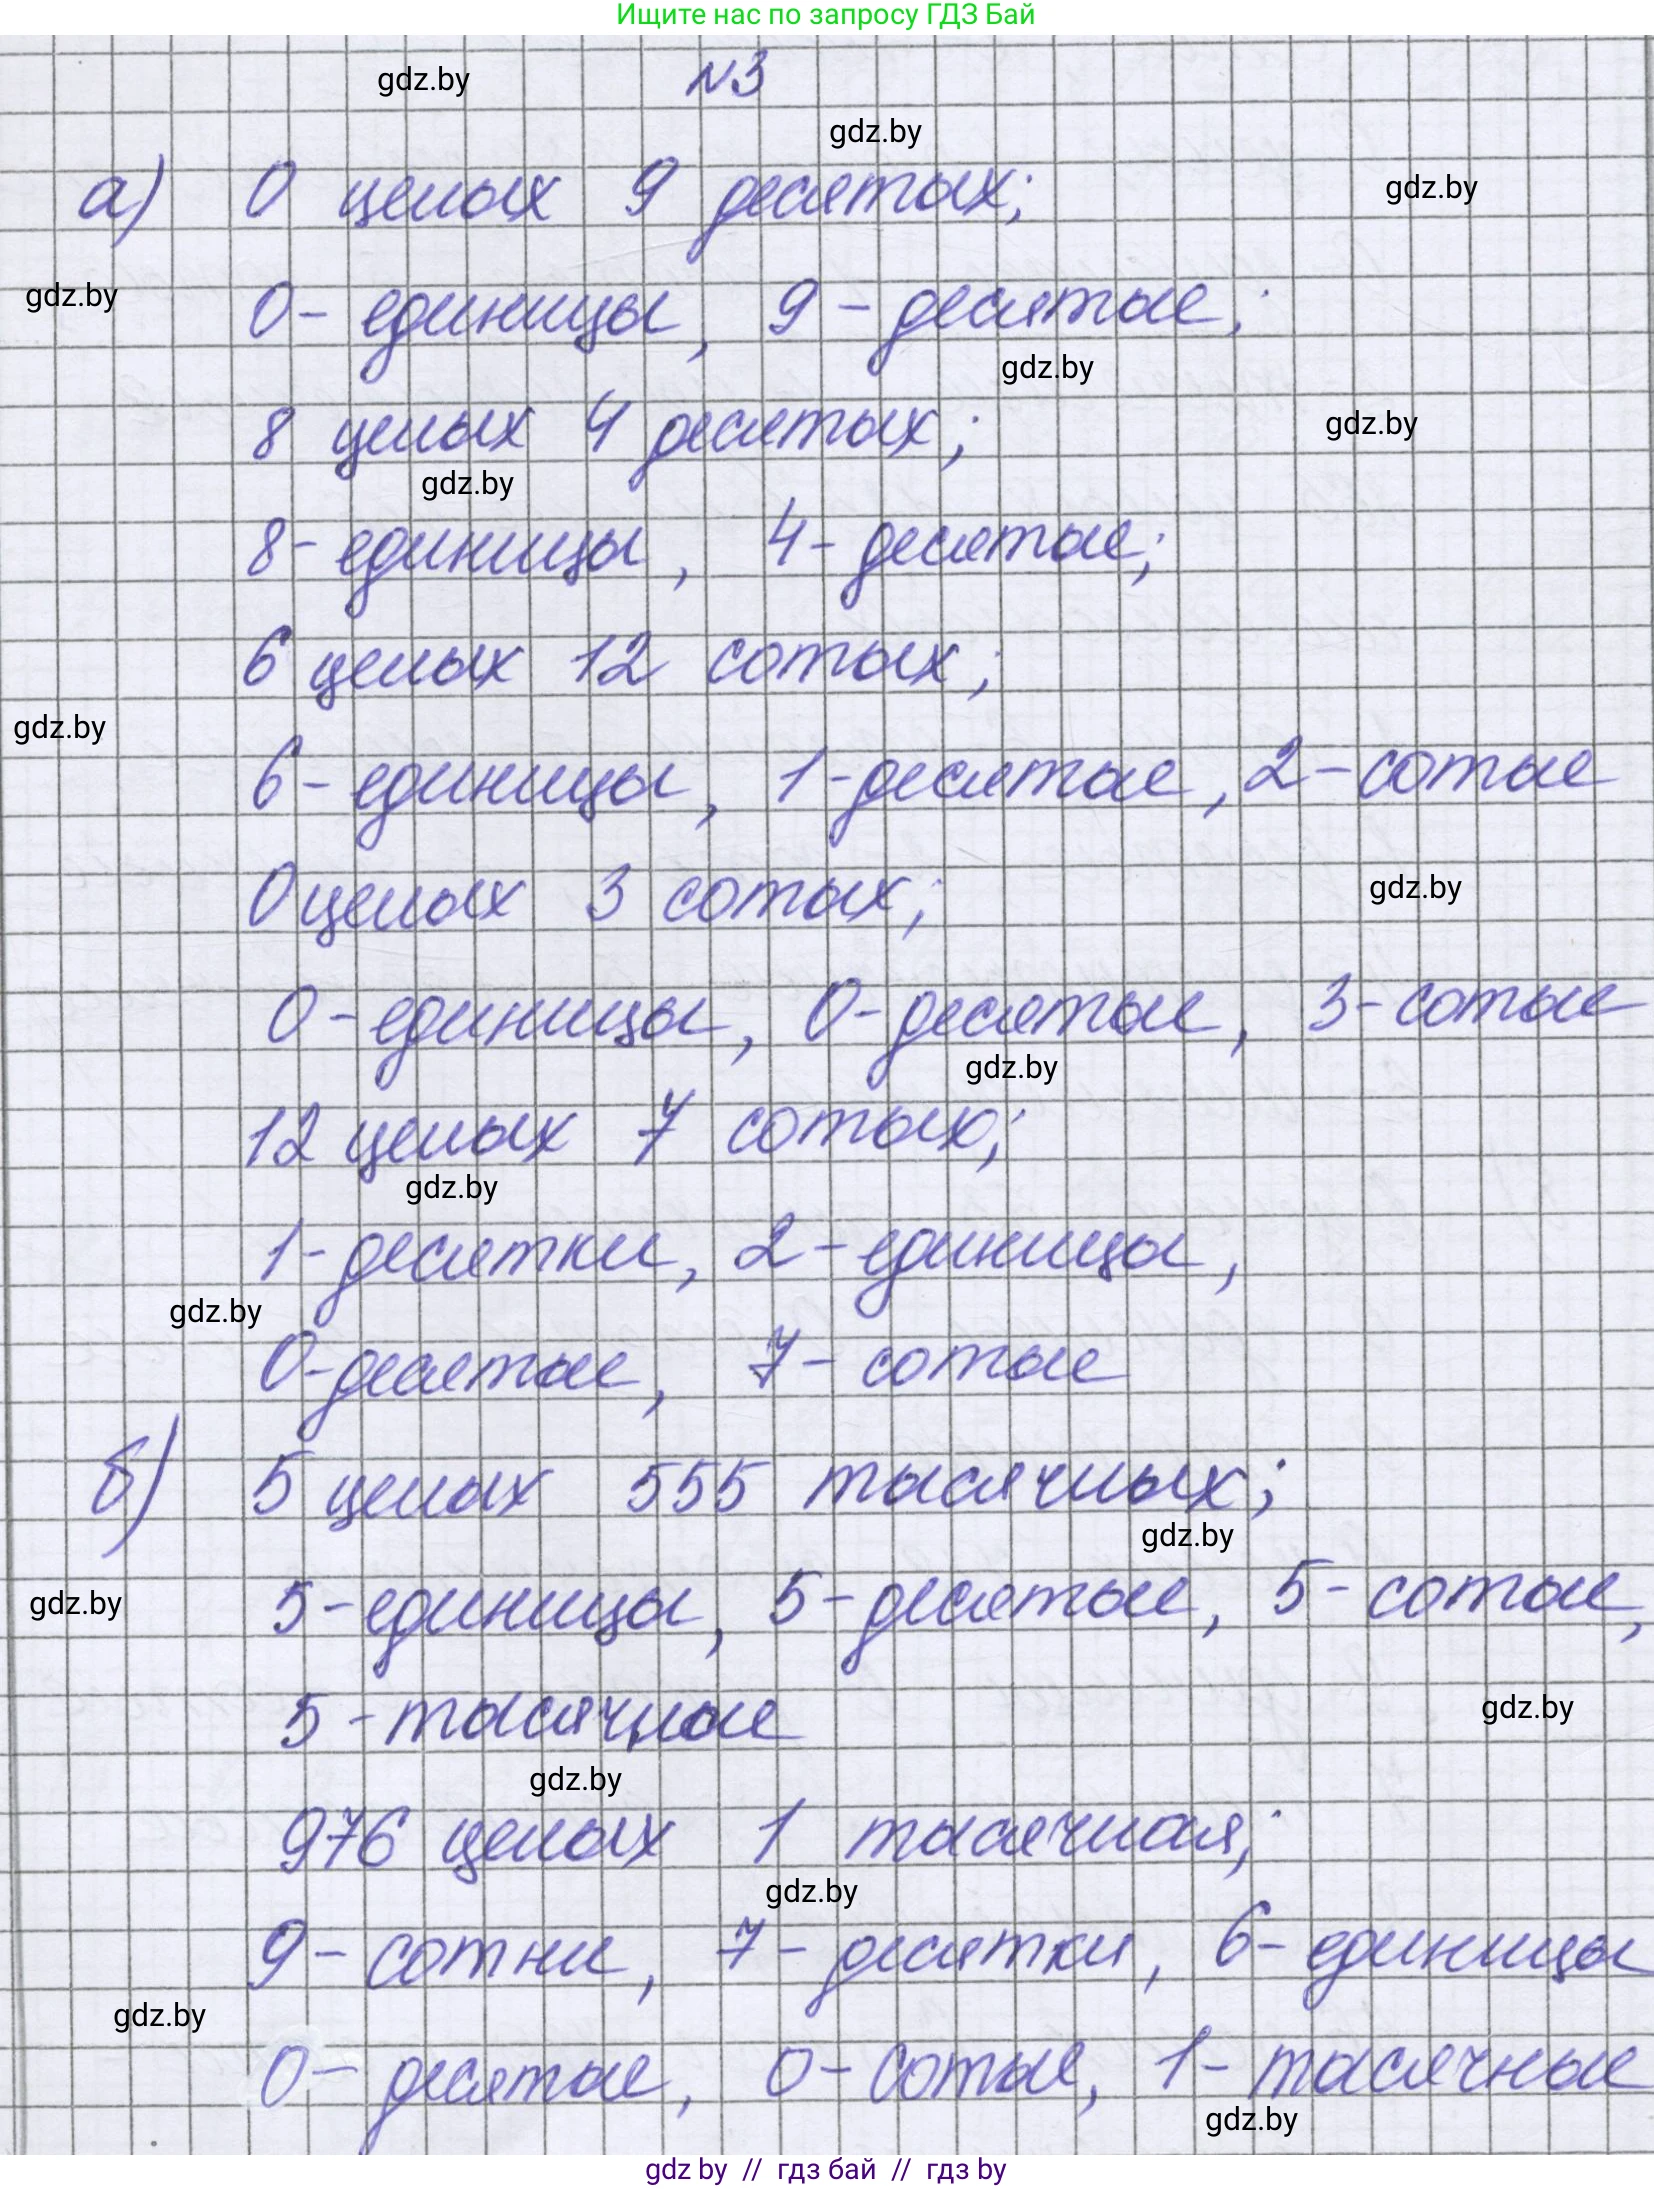 Ищите нас по запросу ГДЗ Бай
N3
gdz.by
gdz.by
а) 0 целых 9 десятых;
gdz.by
gdz.by
0- единицы, 9 - десятые;
gdz.by
8 целых 4 десятых;
gdz.by
gdz.by
8- единицы, 4- десятые;
6 целых 12 сотых;
gdz.by
6- единицы, 1-десятые, 2-сотые
0 целых 3 сотых;
gdz.by
0-единицы, 0-десятые, 3-сотые
gdz.by
12 целых 7 сотых;
gdz.by
1-десятки, 2-единицы,
gdz.by
0-десятые, 7- сотые
б) 5 целых 555 тысячных;
gdz.by
gdz.by
5-единицы, 5-десятые, 5- сотые,
5 -тысячные
gdz.by
gdz.by
976 целых 1 тысячная;
gdz.by
9- сотни, 7- десятки, 6- единицы
gdz.by
0- десятые, 0- сотые, 1- тысячные
gdz.by
gdz by // гдз бай // гдз by